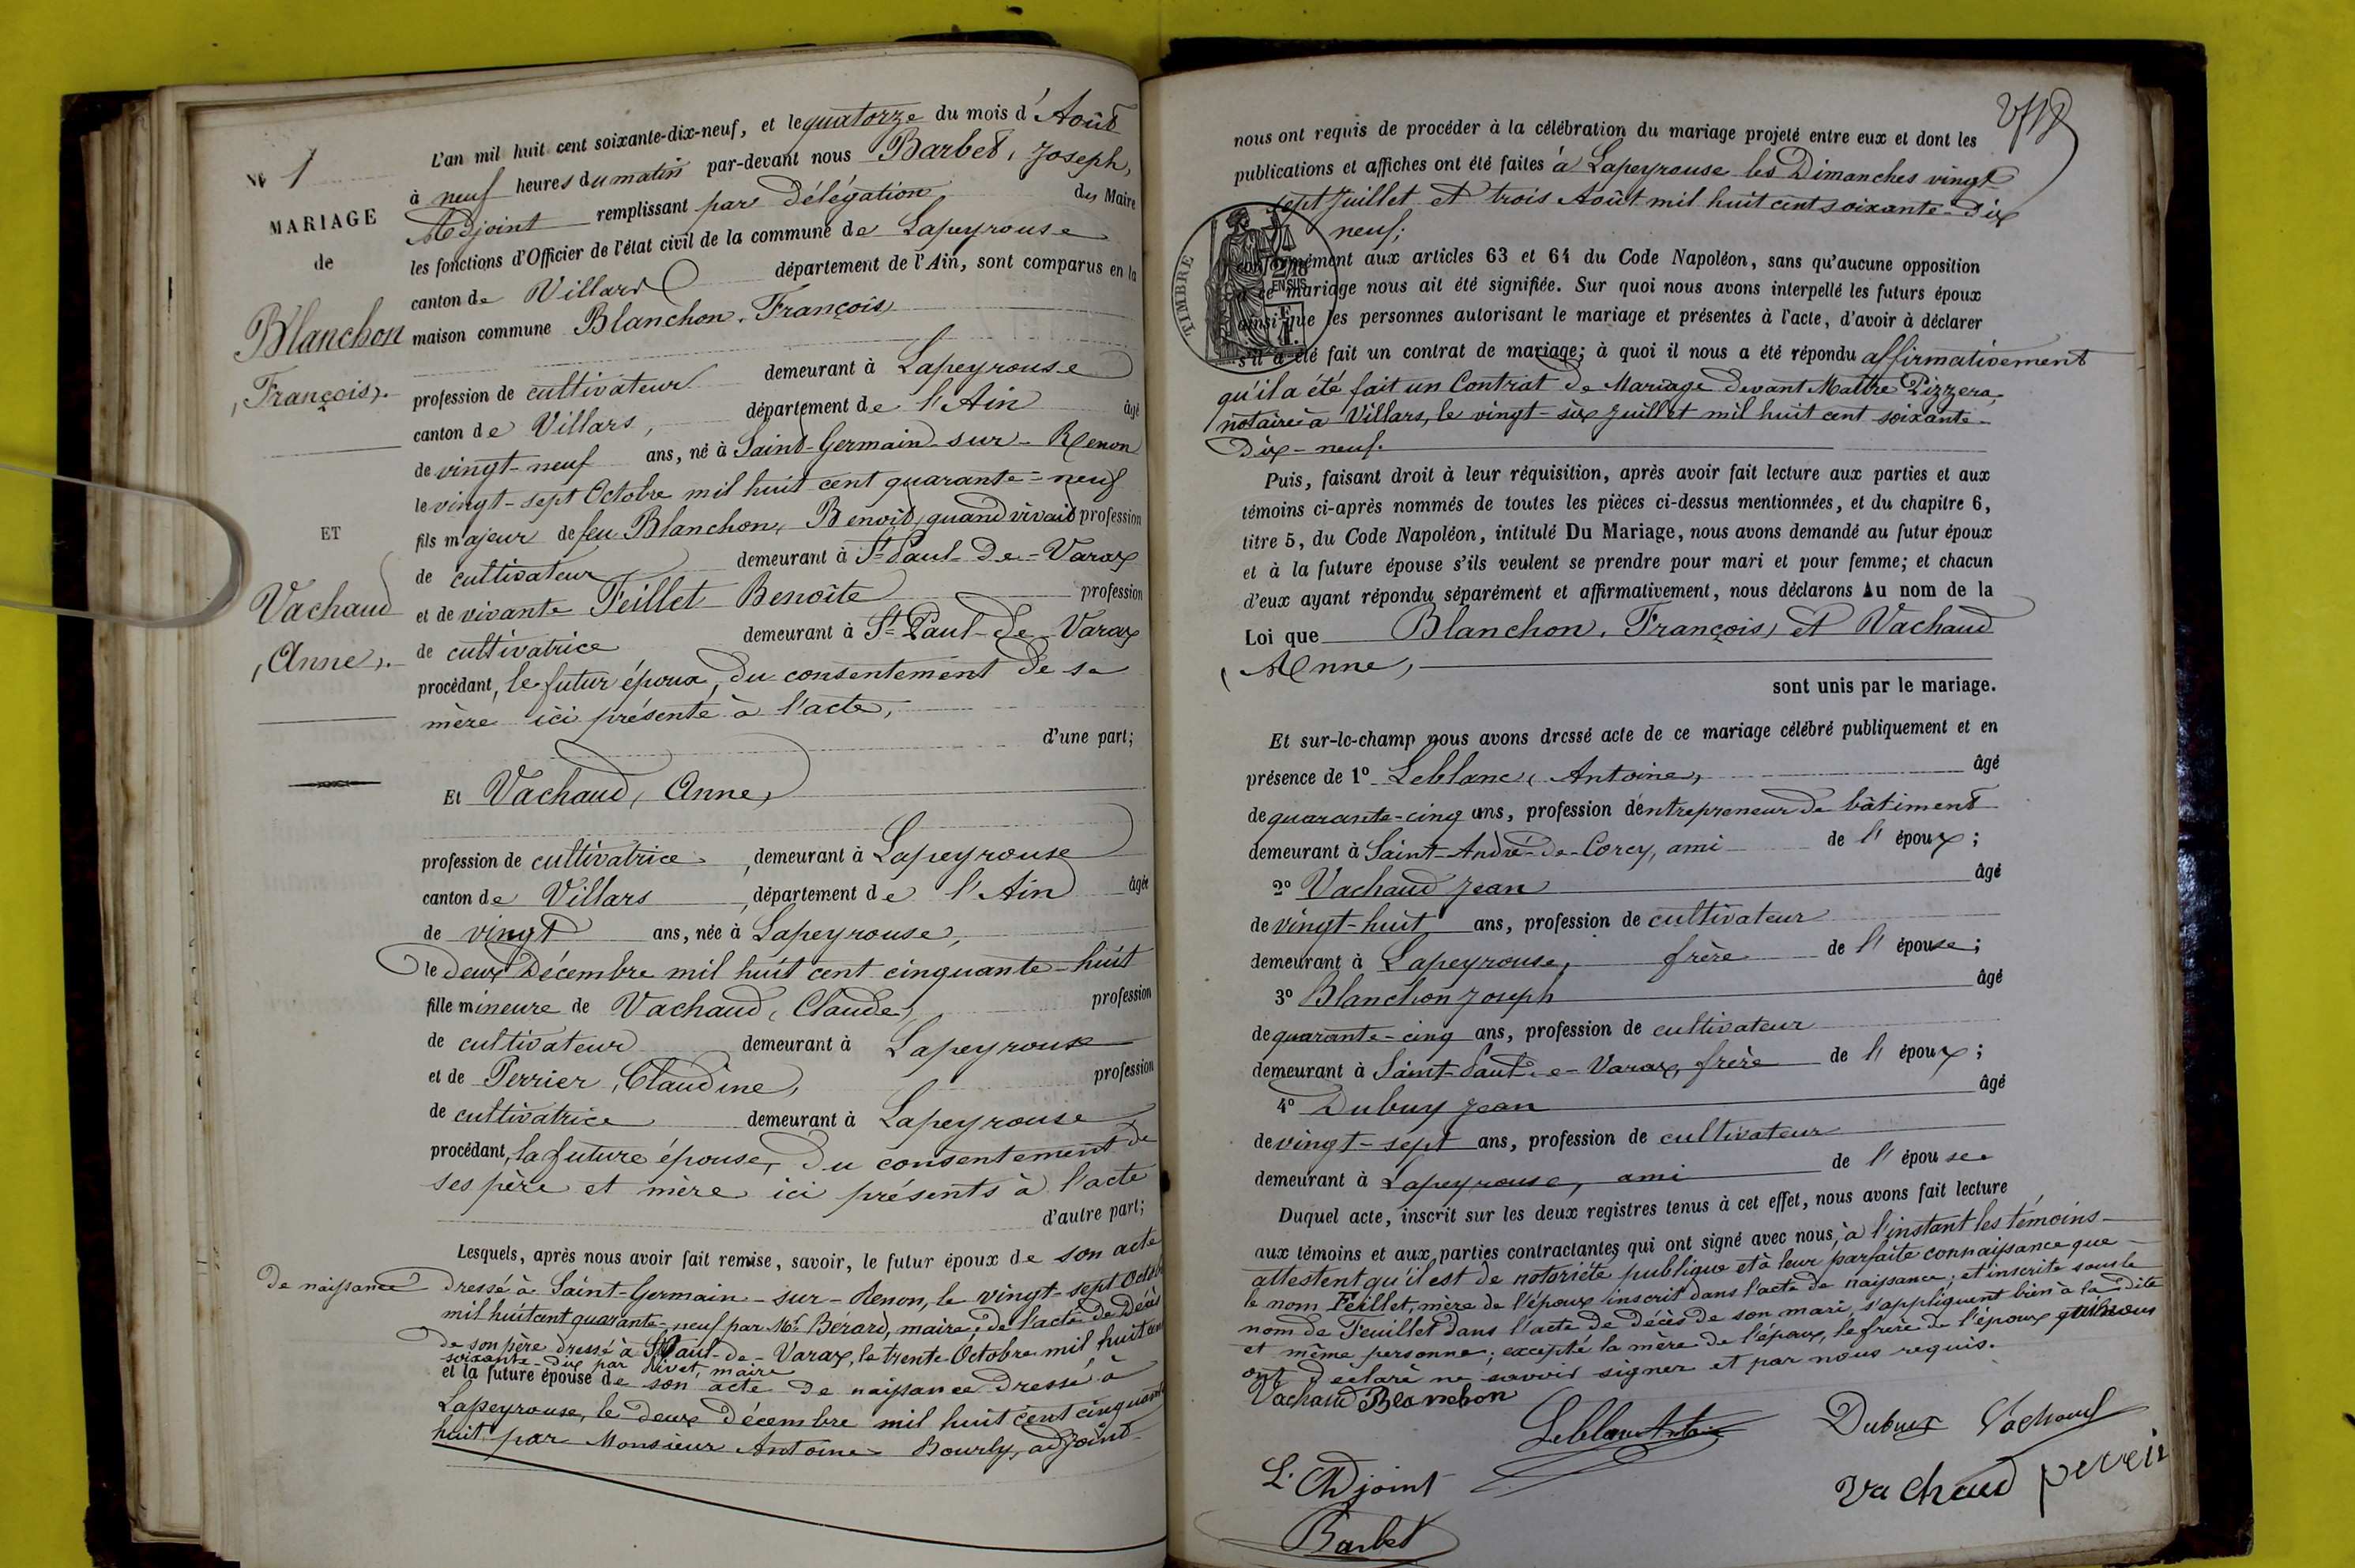 Nº 1
MARIAGE
de
Blanchon
François.
ET
Vachaud
Anne.
L'an mil huit cent soixante-dix-neuf, et le quatorze du mois d'Août
à neuf heures du matin par-devant nous Barbet, Joseph,
Adjoint remplissant par délégation du Maire
les fonctions d'Officier de l'état civil de la commune de Lapeyrouse
canton de Villars département de l'Ain, sont comparus en la
maison commune Blanchon, François,
profession de cultivateur demeurant à Lapeyrouse
canton de Villars, département de l'Ain âgé
de vingt-neuf ans, né à Saint-Germain-sur-Renon
le vingt-sept Octobre mil huit cent quarante-neuf
fils majeur de feu Blanchon, Benoît, quand vivait profession
de cultivateur demeurant à St Paul-de-Varax
et de vivante Feillet Benoîte profession
de cultivatrice demeurant à St Paul-de-Varax
procédant, le futur époux, du consentement de sa
mère ici présente à l'acte,
d'une part;
Et Vachaud, Anne,
profession de cultivatrice, demeurant à Lapeyrouse
canton de Villars, département de l'Ain âgée
de vingt ans, née à Lapeyrouse,
le deux Décembre mil huit cent cinquante-huit
fille mineure de Vachaud, Claude, profession
de cultivateur demeurant à Lapeyrouse
et de Perrier, Claudine, profession
de cultivatrice demeurant à Lapeyrouse
procédant, la future épouse, du consentement de
ses père et mère ici présents à l'acte
d'autre part;
Lesquels, après nous avoir fait remise, savoir, le futur époux de son acte
de naissance dressé à Saint-Germain-sur-Renon, le vingt-sept Octobre
mil huit cent quarante-neuf par Mr Bérard, maire; de l'acte de décès
de son père dressé à St Paul-de-Varax, le trente Octobre mil huit cent
soixante-dix par Nivet, maire
et la future épouse de son acte de naissance dressé à
Lapeyrouse, le deux décembre mil huit cent cinquante
huit par Monsieur Antoine Bourly, adjoint
nous ont requis de procéder à la célébration du mariage projeté entre eux et dont les
publications et affiches ont été faites à Lapeyrouse les Dimanches vingt-
sept Juillet et trois Août mil huit cent soixante-dix
neuf;
TIMBRE
conformément aux articles 63 et 64 du Code Napoléon, sans qu'aucune opposition
à ce mariage nous ait été signifiée. Sur quoi nous avons interpellé les futurs époux
ainsi que les personnes autorisant le mariage et présentes à l'acte, d'avoir à déclarer
s'il a été fait un contrat de mariage; à quoi il nous a été répondu affirmativement
qu'il a été fait un Contrat de Mariage devant Maître Pizzera,
notaire à Villars, le vingt-six Juillet mil huit cent soixante-
Dix-neuf.
Puis, faisant droit à leur réquisition, après avoir fait lecture aux parties et aux
témoins ci-après nommés de toutes les pièces ci-dessus mentionnées, et du chapitre 6,
titre 5, du Code Napoléon, intitulé Du Mariage, nous avons demandé au futur époux
et à la future épouse s'ils veulent se prendre pour mari et pour femme; et chacun
d'eux ayant répondu séparément et affirmativement, nous déclarons Au nom de la
Loi que Blanchon, François, et Vachaud
Anne,
sont unis par le mariage.
Et sur-le-champ nous avons dressé acte de ce mariage célébré publiquement et en
présence de 1º Leblanc, Antoine, âgé
de quarante-cinq ans, profession d'entrepreneur de bâtiment
demeurant à Saint-André-de-Corcy, ami de l'époux;
2º Vachaud Jean âgé
de vingt-huit ans, profession de cultivateur
demeurant à Lapeyrouse, frère de l'épouse;
3º Blanchon Joseph âgé
de quarante-cinq ans, profession de cultivateur
demeurant à Saint-Paul-de-Varax, frère de l'époux;
4º Dubuy Jean âgé
de vingt-sept ans, profession de cultivateur
demeurant à Lapeyrouse, ami de l'épouse.
Duquel acte, inscrit sur les deux registres tenus à cet effet, nous avons fait lecture
aux témoins et aux parties contractantes qui ont signé avec nous, à l'instant les témoins
attestent qu'il est de notoriété publique et à leur parfaite connaissance que
le nom Feillet, mère de l'époux inscrit dans l'acte de naissance; et inscrite sous le
nom de Feuillet dans l'acte de décès de son mari, s'appliquent bien à la dite
et même personne; excepté la mère de l'époux, le frère de l'époux qui nous
ont déclaré ne savoir signer et par nous requis.
Vachaud Blanchon
Leblanc Antoine
Dubuy Vachaud
L'Adjoint
Vachaud perrier
Barbet